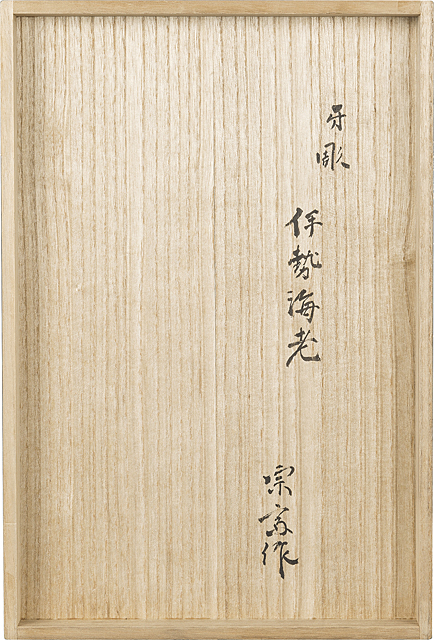 牙彫
伊勢海老
宗富作